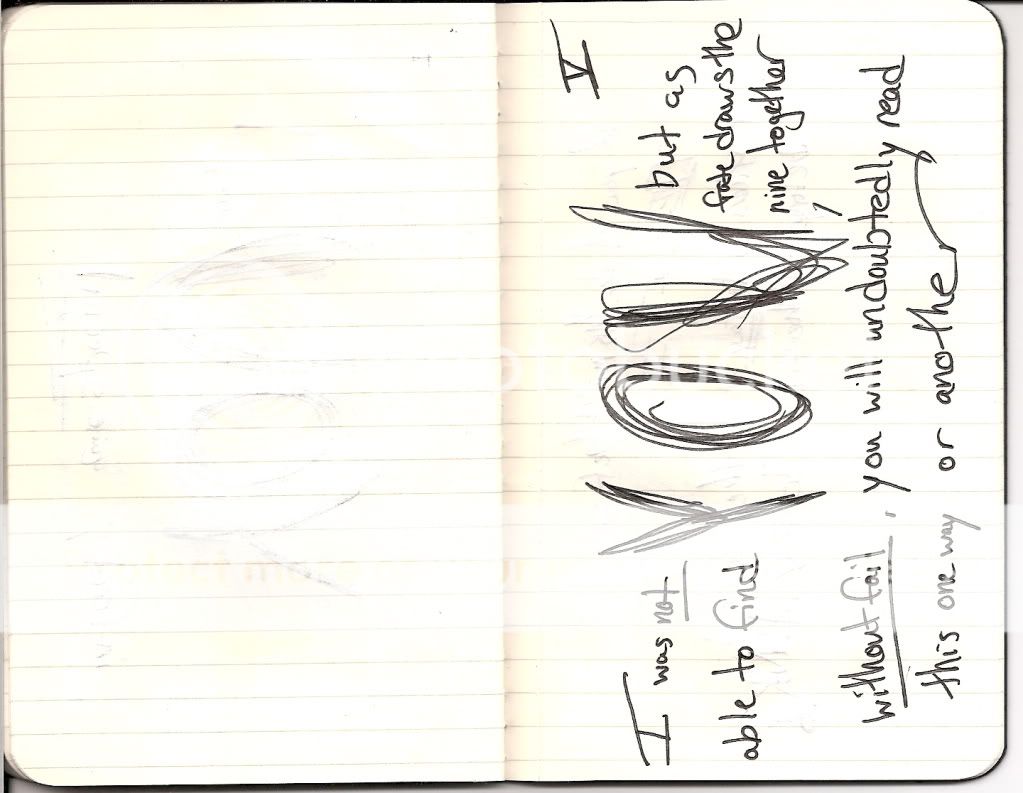 V
I was not
able to find
YOU
but as
fate draws the
nine together,
without fail, you will undoubtedly read
this one way or another